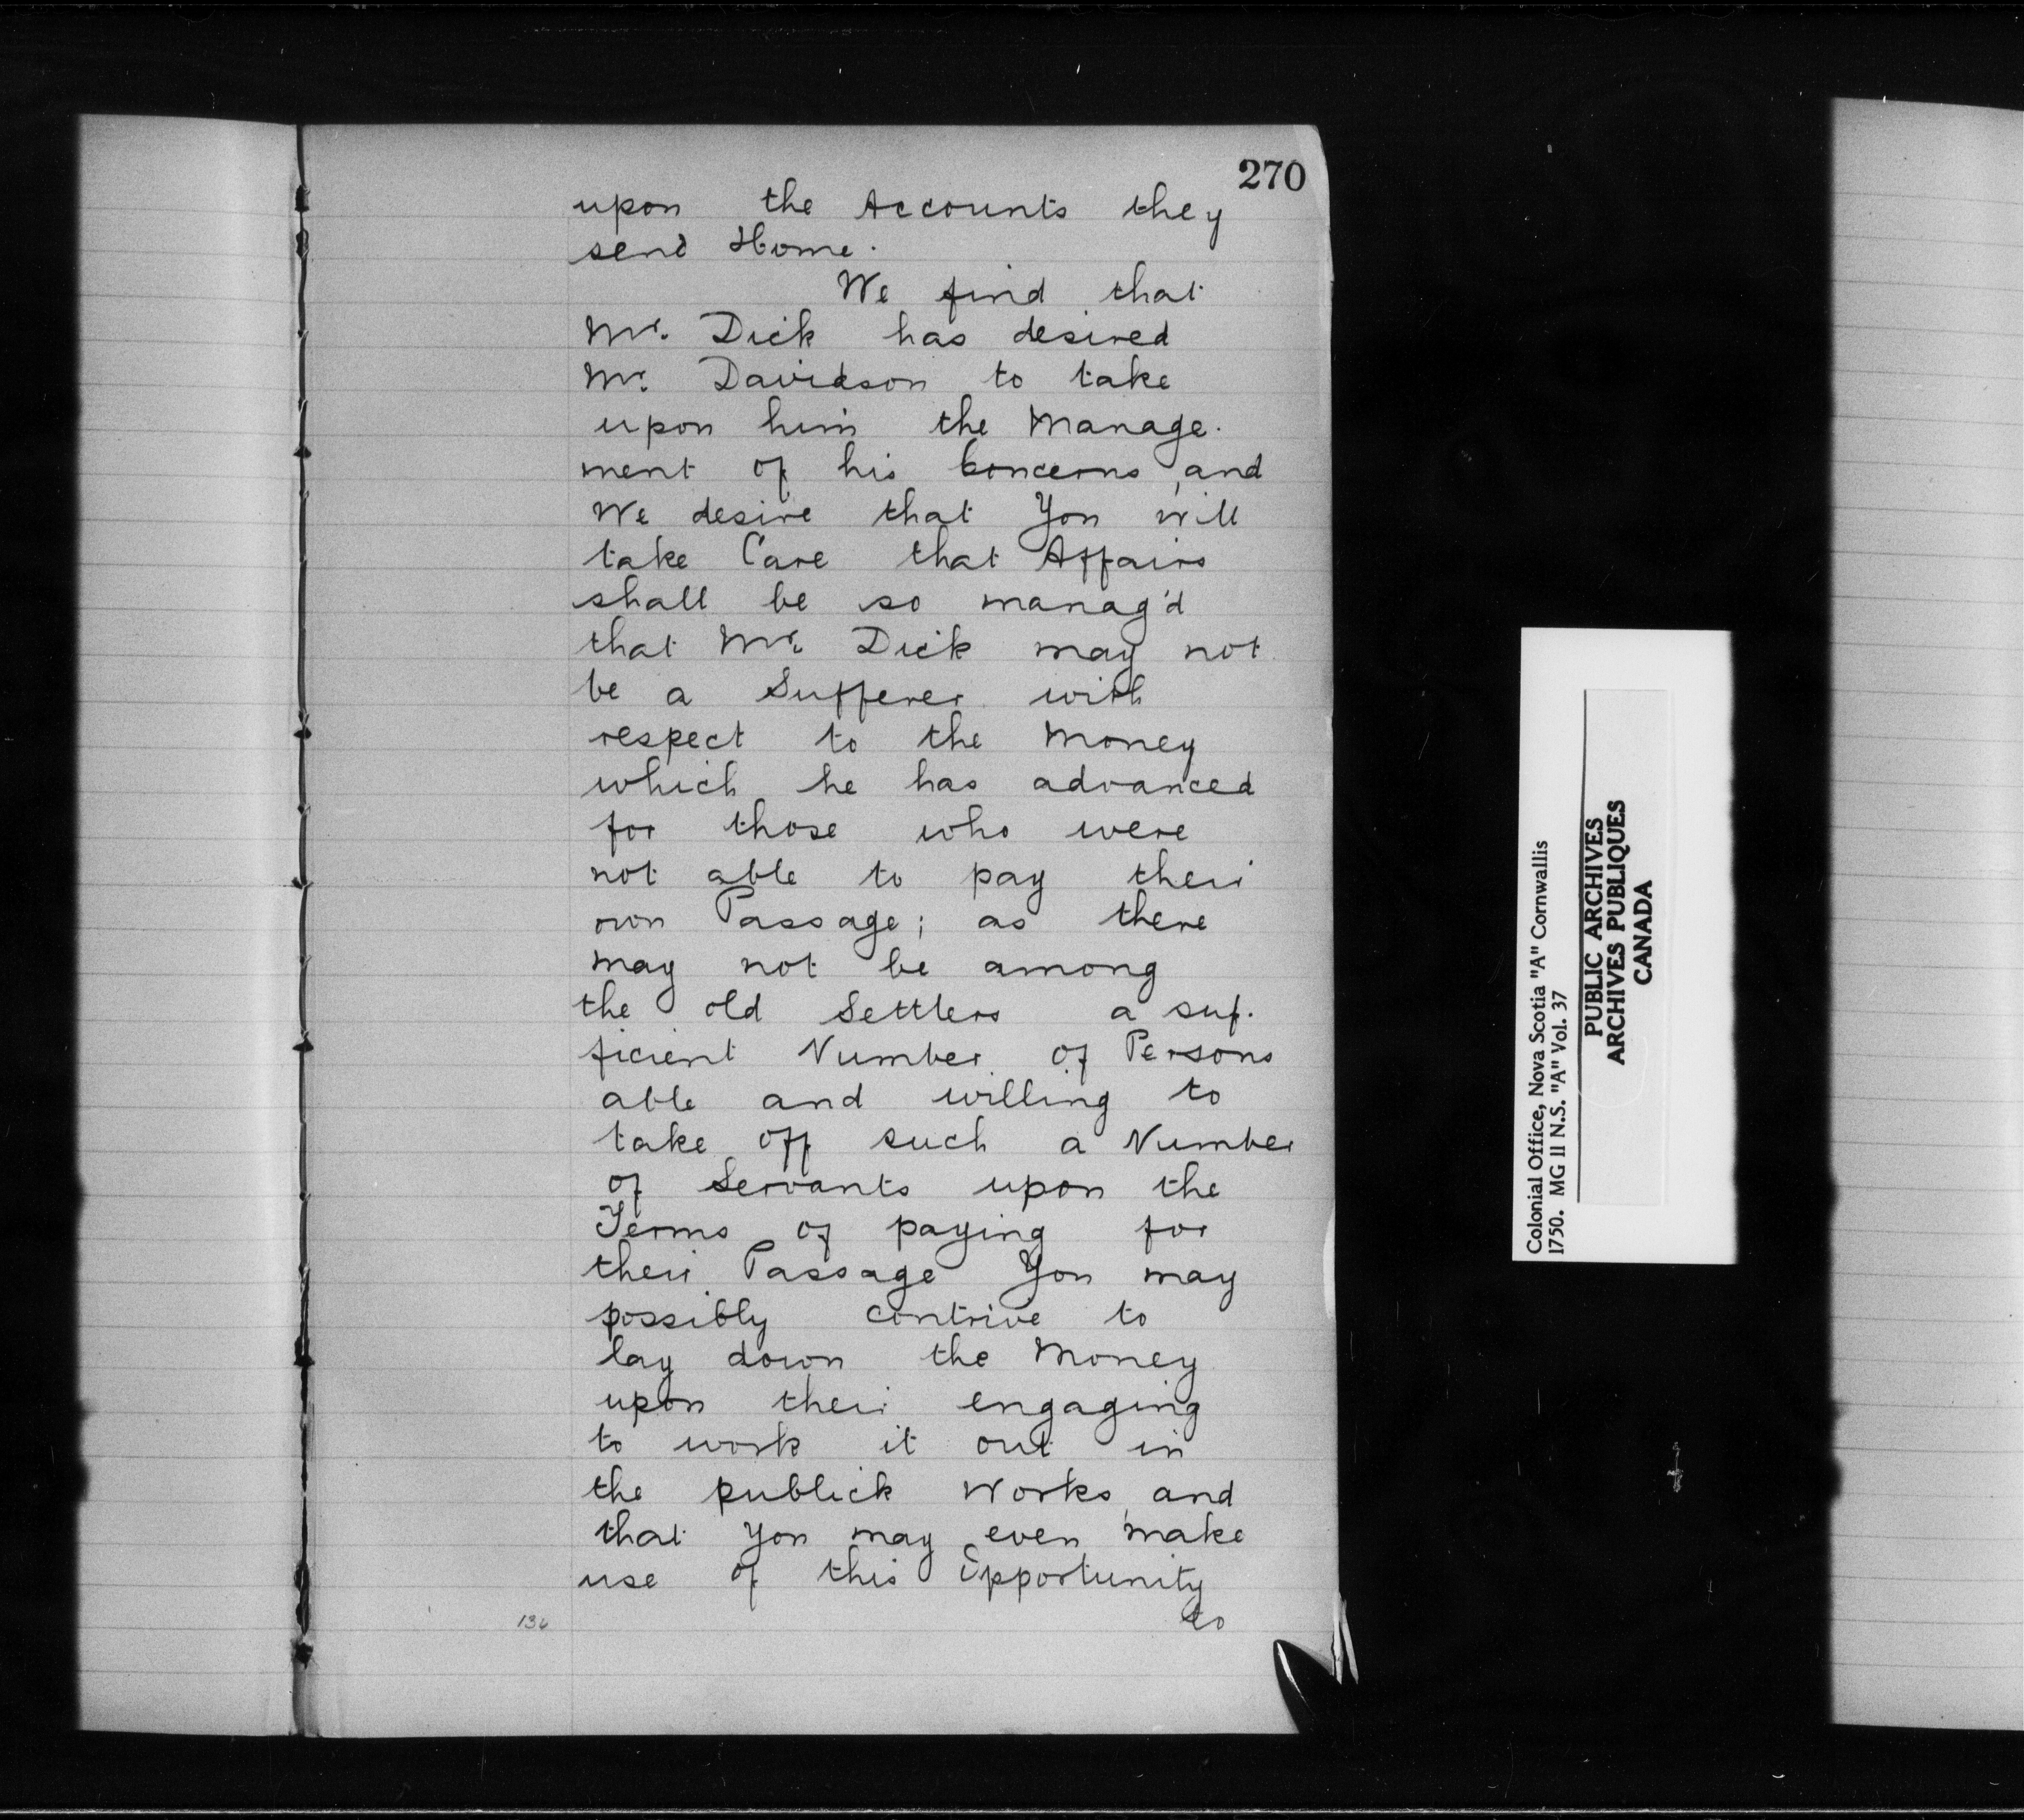 270
upon the Accounts they
send Home.
We find that
Mr. Dick has desired
Mr. Davidson to take
upon him the Manage-
ment of his Concerns, and
We desire that You will
take Care that Affairs
shall be so manag'd
that Mr. Dick may not
be a Sufferer with
respect to the Money
which he has advanced
for those who were
not able to pay their
own Passage; as there
may not be among
the old Settlers a suf-
ficient Number of Persons
able and willing to
take off such a Number
of Servants upon the
Terms of paying for
their Passage You may
possibly contrive to
lay down the Money
upon their engaging
to work it out in
the publick Works, and
that You may even make
use of this Opportunity
to
136
Colonial Office, Nova Scotia "A" Cornwallis
1750. MG 11 N.S. "A" Vol. 37
PUBLIC ARCHIVES
ARCHIVES PUBLIQUES
CANADA